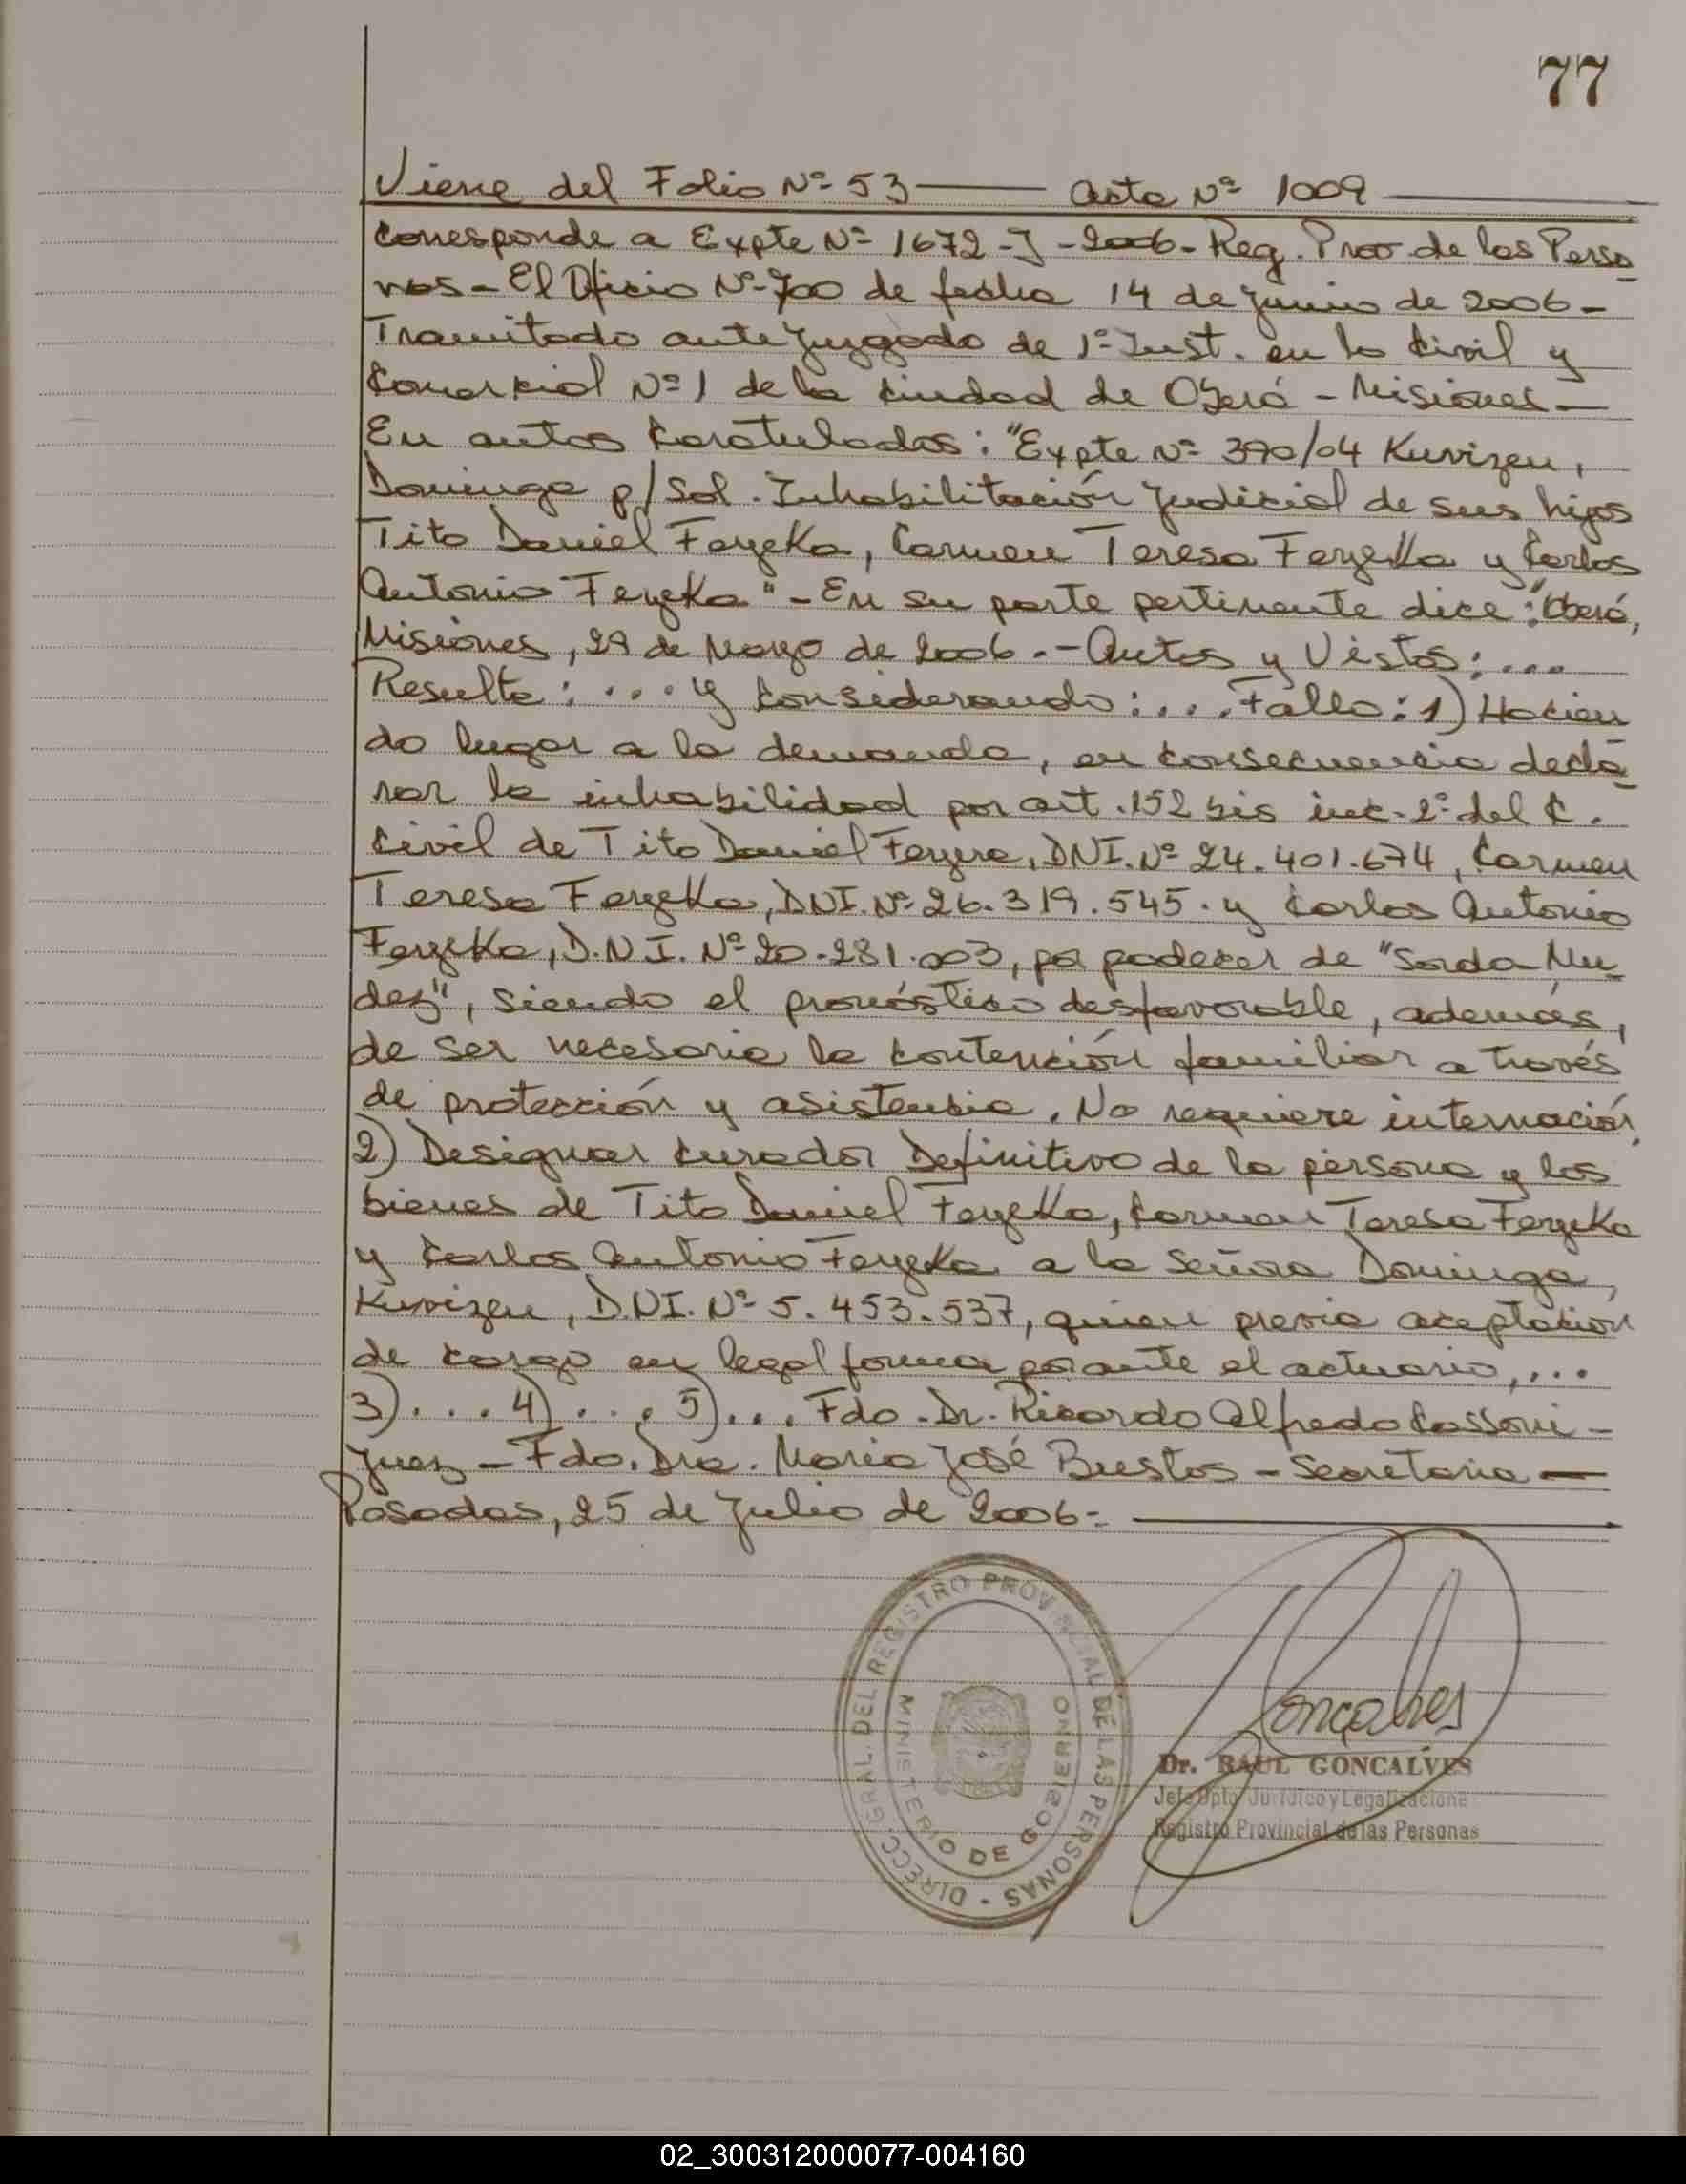 77
Viene del Folio Nº 53 — Acta Nº 1009
Corresponde a Expte Nº 1672-J-2006- Reg. Prov. de las Perso
nas - El Oficio Nº 700 de fecha 14 de Junio de 2006 -
Tramitado ante Juzgado de 1º Inst. en lo Civil y
Comercial Nº 1 de la Ciudad de Oberá - Misiones -
En autos Caratulados: "Expte Nº 390/04 Kuvizen,
Dominga p/ Sol. Inhabilitación Judicial de sus hijos
Tito Daniel Feyeka, Carmen Teresa Feyeka y Carlos
Antonio Feyeka" - En su parte pertinente dice: "Oberá,
Misiones, 29 de Marzo de 2006.- Autos y Vistos: ...
Resulta: ... y Considerando: ... Fallo: 1) Hacien
do lugar a la demanda, en consecuencia decla
rar la inhabilidad por art. 152 bis inc. 2º del C.
Civil de Tito Daniel Feyera, DNI. Nº 24.401.674, Carmen
Teresa Feyeka, DNI. Nº 26.319.545. y Carlos Antonio
Feyeka, D.N.I. Nº 20.281.003, por padecer de "Sorda Mu
dez", siendo el pronóstico desfavorable, además,
de ser necesaria la contención familiar a través
de protección y asistencia. No requiere internación.
2) Designar Curador Definitivo de la persona y los
bienes de Tito Daniel Feyeka, Carmen Teresa Feyeka
y Carlos Antonio Feyeka a la Señora Dominga
Kuvizen, D.N.I. Nº 5.453.537, quien previa aceptación
de cargo en legal forma por ante el actuario, ...
3) ... 4) ... 5) ... Fdo. Dr. Ricardo Alfredo Cassoni -
Juez - Fdo. Dra. María José Bustos - Secretaria -
Posadas, 25 de Julio de 2006 -
DIRECC. GRAL. DEL REGISTRO PROVINCIAL DE LAS PERSONAS -
MINISTERIO DE GOBIERNO
Gonçalves
Dr. RAUL GONCALVES
Jefe Dpto. Jurídico y Legalizacione
Registro Provincial de las Personas
02_300312000077-004160